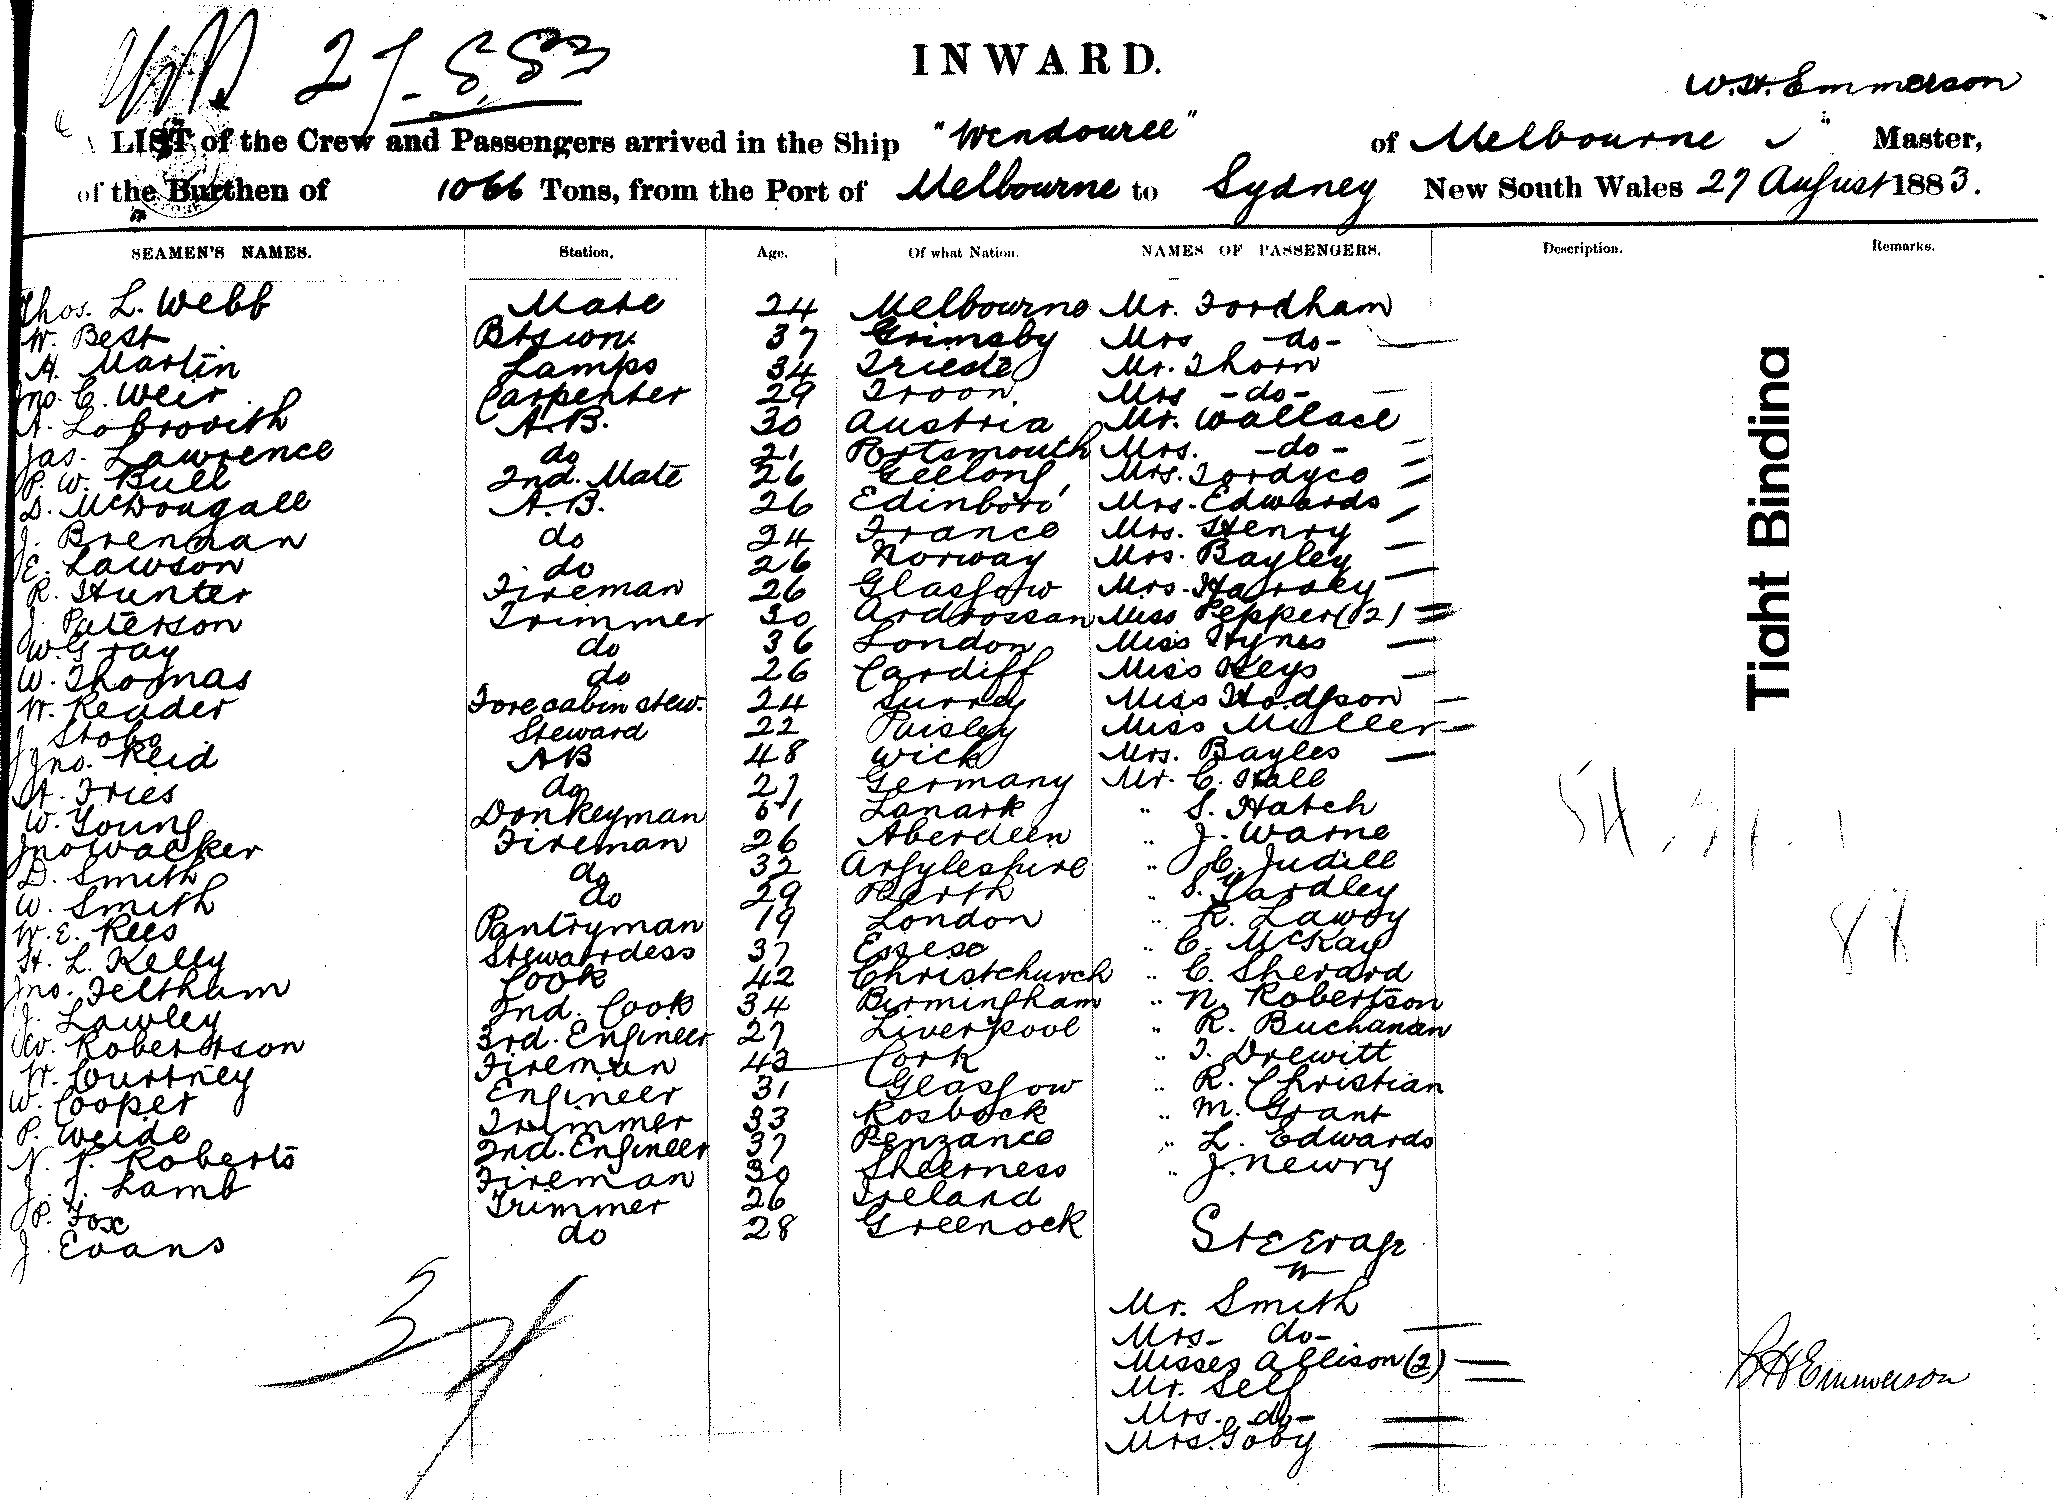 27.8.83
INWARD.
W.H. Emmerson
LIST of the Crew and Passengers arrived in the Ship "Wendouree" of Melbourne Master,
of the Burthen of 1066 Tons, from the Port of Melbourne to Sydney New South Wales 27 August 1883.
SEAMEN'S NAMES. Station. Age. Of what Nation. NAMES OF PASSENGERS. Description. Remarks.
Thos. L. Webb Mate 24 Melbourne Mr. Fordham
W. Best Btswn. 37 Grimsby Mrs -do-
A. Martin Lamps 34 Trieste Mr. Thorn
Jno. C. Weir Carpenter 29 Troon. Mrs -do-
A. Lobrovith A.B. 30 Austria Mr. Wallace
Jas. Lawrence do 21 Portsmouth Mrs. -do-
P. W. Bull 2nd. Mate 26 Geelong, Mrs. Fordyce
D. McDougall A.B. 26 Edinboro' Mrs. Edwards
J. Brennan do 24 France Mrs. Henry
E. Lawson do 26 Norway Mrs. Bayley
R. Hunter Fireman 26 Glasgow Mrs. Harvey
J. Paterson Trimmer 30 Ardrossan Miss Pepper (2)
W. Gray do 36 London Miss Hynes
W. Thomas do 26 Cardiff Miss Keys
W. Reader Forecabin stew. 24 Surrey Miss Hodgson
J. Stobo Steward 22 Paisley Miss Miller
Jno. Reid AB 48 Wick Mrs. Bayles
A. Fries do 27 Germany Mr. C. Hall
W. Young Donkeyman 51 Lanark " S. Hatch
Jno Walker Fireman 26 Aberdeen " J. Warne
D. Smith do 32 Argyleshire " C. Judell
W. Smith do 29 Perth " S. Yardley
W. E. Rees Pantryman 19 London " R. Lawry
H. L. Kelly Stewardess 37 Essex " C. McKay
Jno. Feltham Cook 42 Christchurch " C. Sherard
J. Lawley 2nd. Cook 34 Birmingham " N. Robertson
W. Robertson 3rd. Engineer 27 Liverpool " R. Buchanan
W. Courtney Fireman 43 Cork " T. Drewitt
W. Cooper Engineer 31 Glasgow " R. Christian
P. Weide Trimmer 33 Rosbock " M. Grant
N. P. Roberts 2nd. Engineer 37 Penzance " L. Edwards
J. J. Lamb Fireman 30 Sheerness " J. Newry
P. Fox Trimmer 26 Ireland
J. Evans do 28 Greenock
Steerage
Mr. Smith
Mrs- do-
Misses Allison (2)
Mr. Self
Mrs. do-
Mrs. Goby
Tight Binding
WH Emmerson